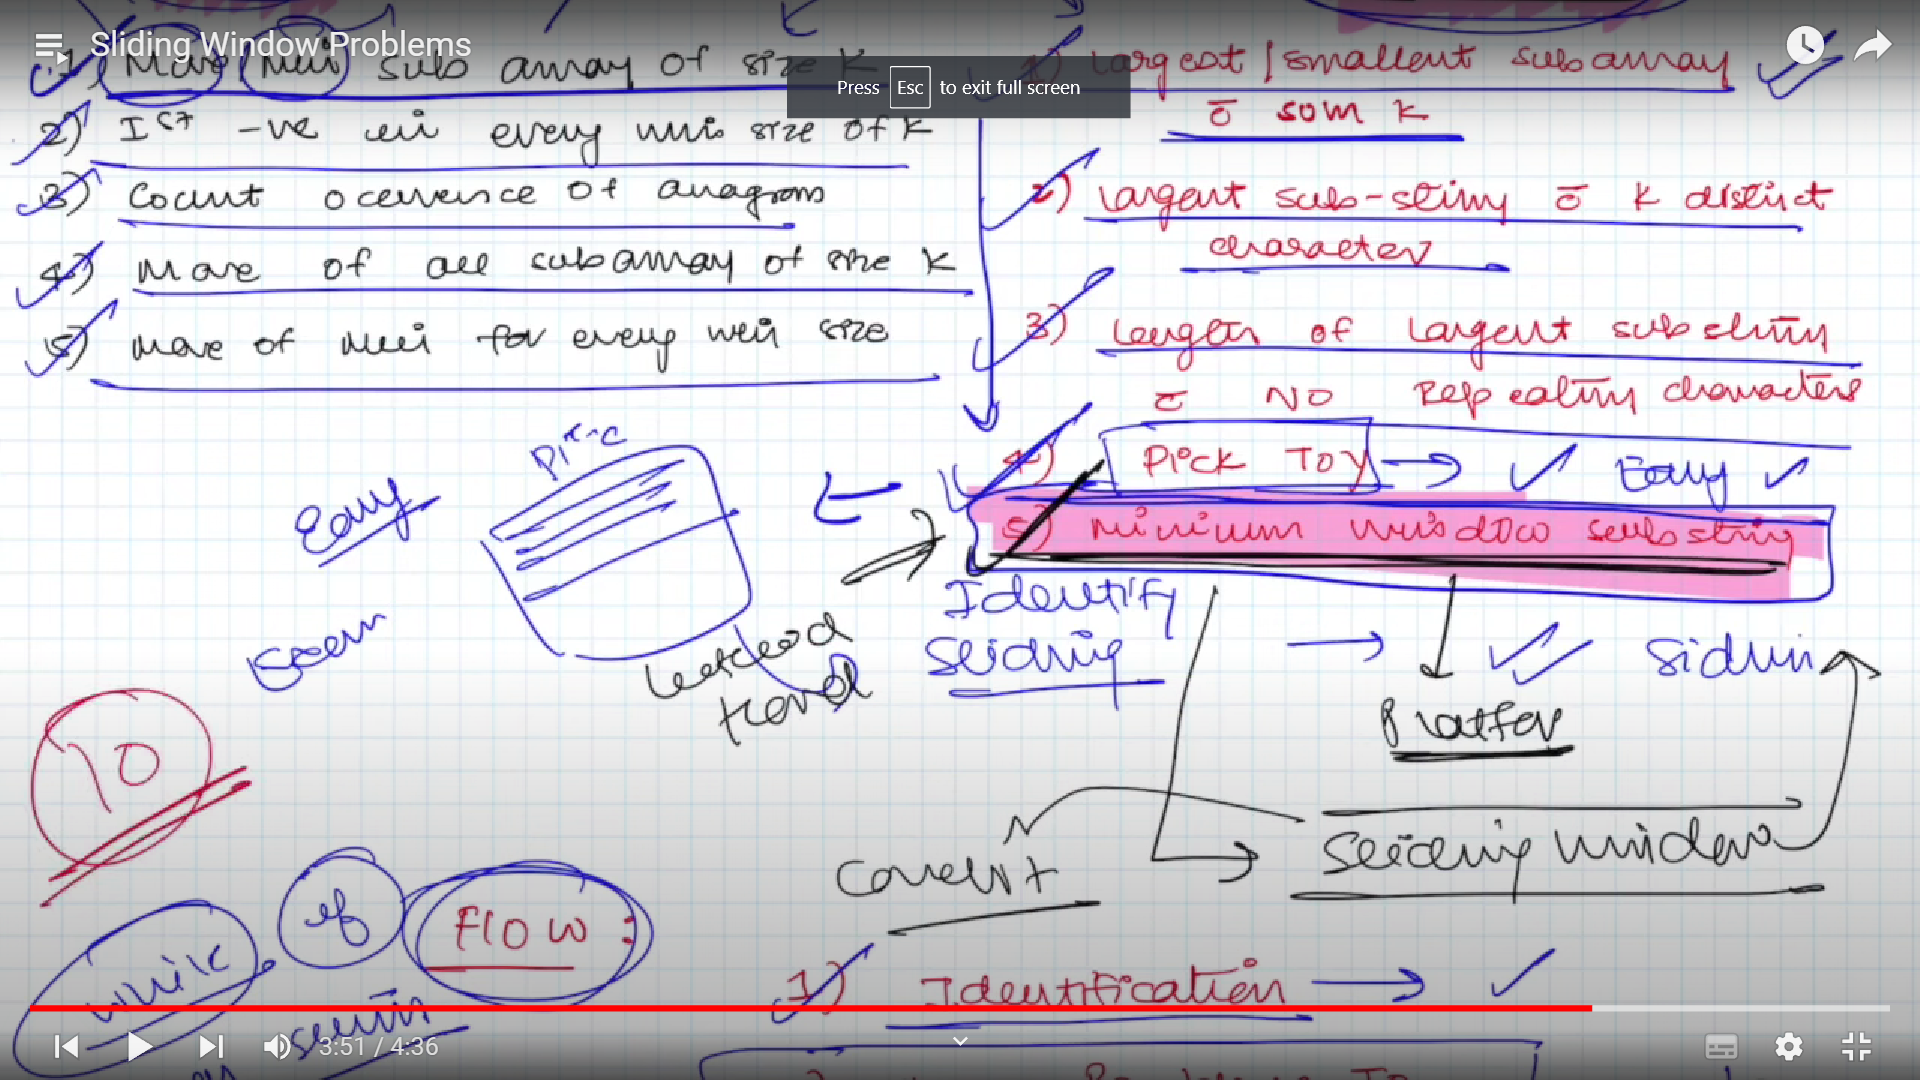 Sliding Window Problems
Press Esc to exit full screen
1) Max Min sub array of size K
2) Ist -ve in every win size of K
3) Count occurence of anagram
4) Max of all subarray of size K
5) Max of Min for every win size
1) Largest / smallest subarray
c̄ sum K
2) Largest sub-string c̄ K distinct
character
3) Length of Largest substring
c̄ NO Repeating characters
4) Pick Toy → ✓ Easy ✓
5) Minimum window substring
Easy
Identify
Sliding
→
Leetcode
Hard
10
Sliding Window
if
FLOW:
while
1) Identification → ✓
3:51 / 4:36